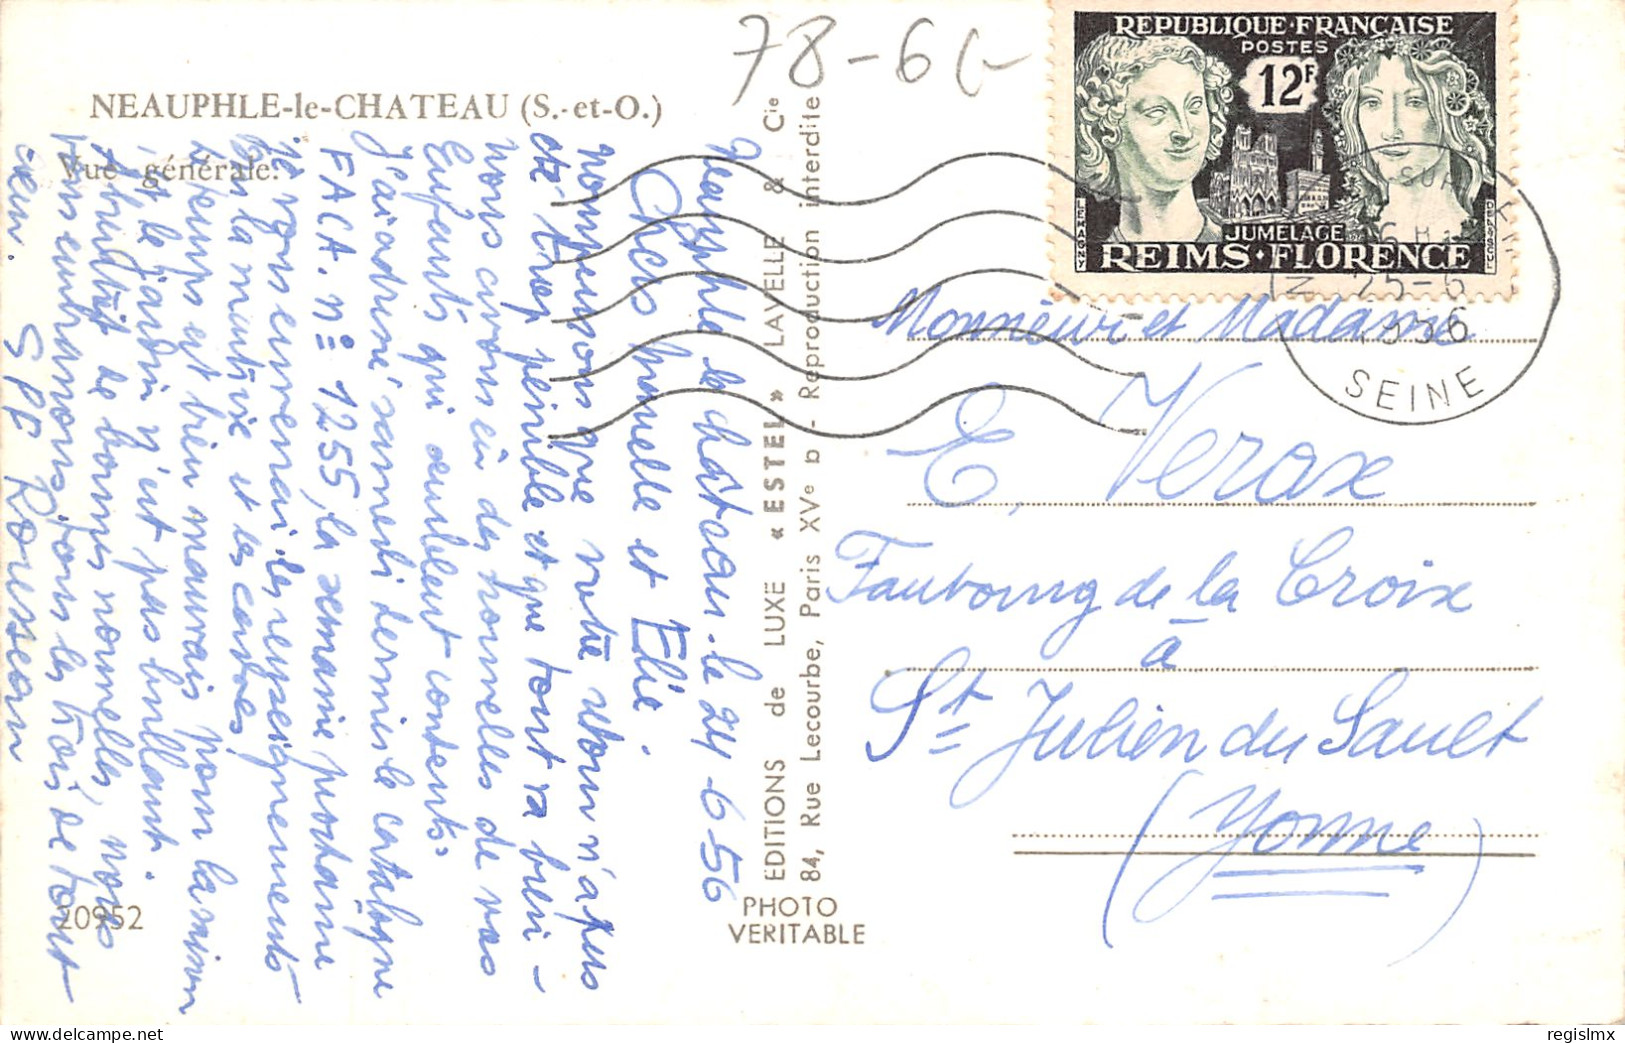 78-6
NEAUPHLE-le-CHATEAU (S.-et-O.)
Vue générale.
20952
Neauphle le château. le 24-6-56
Chers prunelle et Elie.
nous pensons que votre retour n'a pas
été trop pénible et que tout va bien -
nous avons eu des nouvelles de vos
Enfants qui semblent contents.
J'ai adressé samedi dernier le catalogue
FACA. n° 1255, la semaine prochaine
je vous enverrai les renseignements
sur la mutuelle et les cartes,
le temps est bien mauvais pour la saison
et le jardin n'est pas brillant.
de bonnes nouvelles, nous
vous embrassons tous les trois de tout
cœur. Rousseau
EDITIONS de LUXE « ESTEL » LAVELLE & Cie
84, Rue Lecourbe, Paris XVe b - Reproduction interdite
PHOTO
VERITABLE
REPUBLIQUE·FRANÇAISE
POSTES
12F
LEMAGNY
JUMELAGE
REIMS·FLORENCE
SUR
25-6
1956
SEINE
Monsieur et Madame
E. Verax
Faubourg de la Croix
à
St Julien du Sault
(Yonne)
regislmx